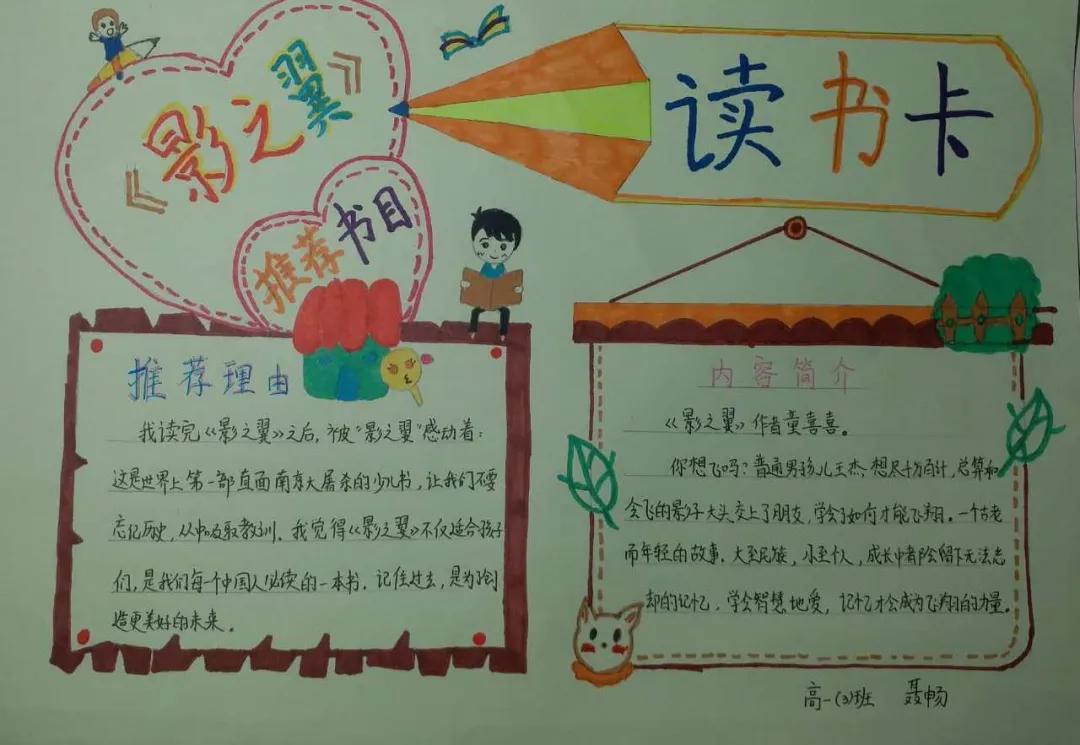 《影之翼》
推荐书目
读书卡
推荐理由
我读完《影之翼》之后，被“影之翼”感动着：
这是世界上第一部直面南京大屠杀的少儿书，让我们不要
忘记历史，从中吸取教训。我觉得《影之翼》不仅适合孩子
们，是我们每个中国人必读的一本书。记住过去，是为了创
造更美好的未来。
内容简介
《影之翼》作者童喜喜。
你想飞吗？普通男孩儿王杰，想尽千方百计，总算和
会飞的影子大头交上了朋友，学会了如何才能飞翔。一个古老
而年轻的故事。大至民族，小至个人，成长中都会留下无法忘
却的记忆，学会智慧地爱，记忆才会成为飞翔的力量。
高一(3)班 聂畅